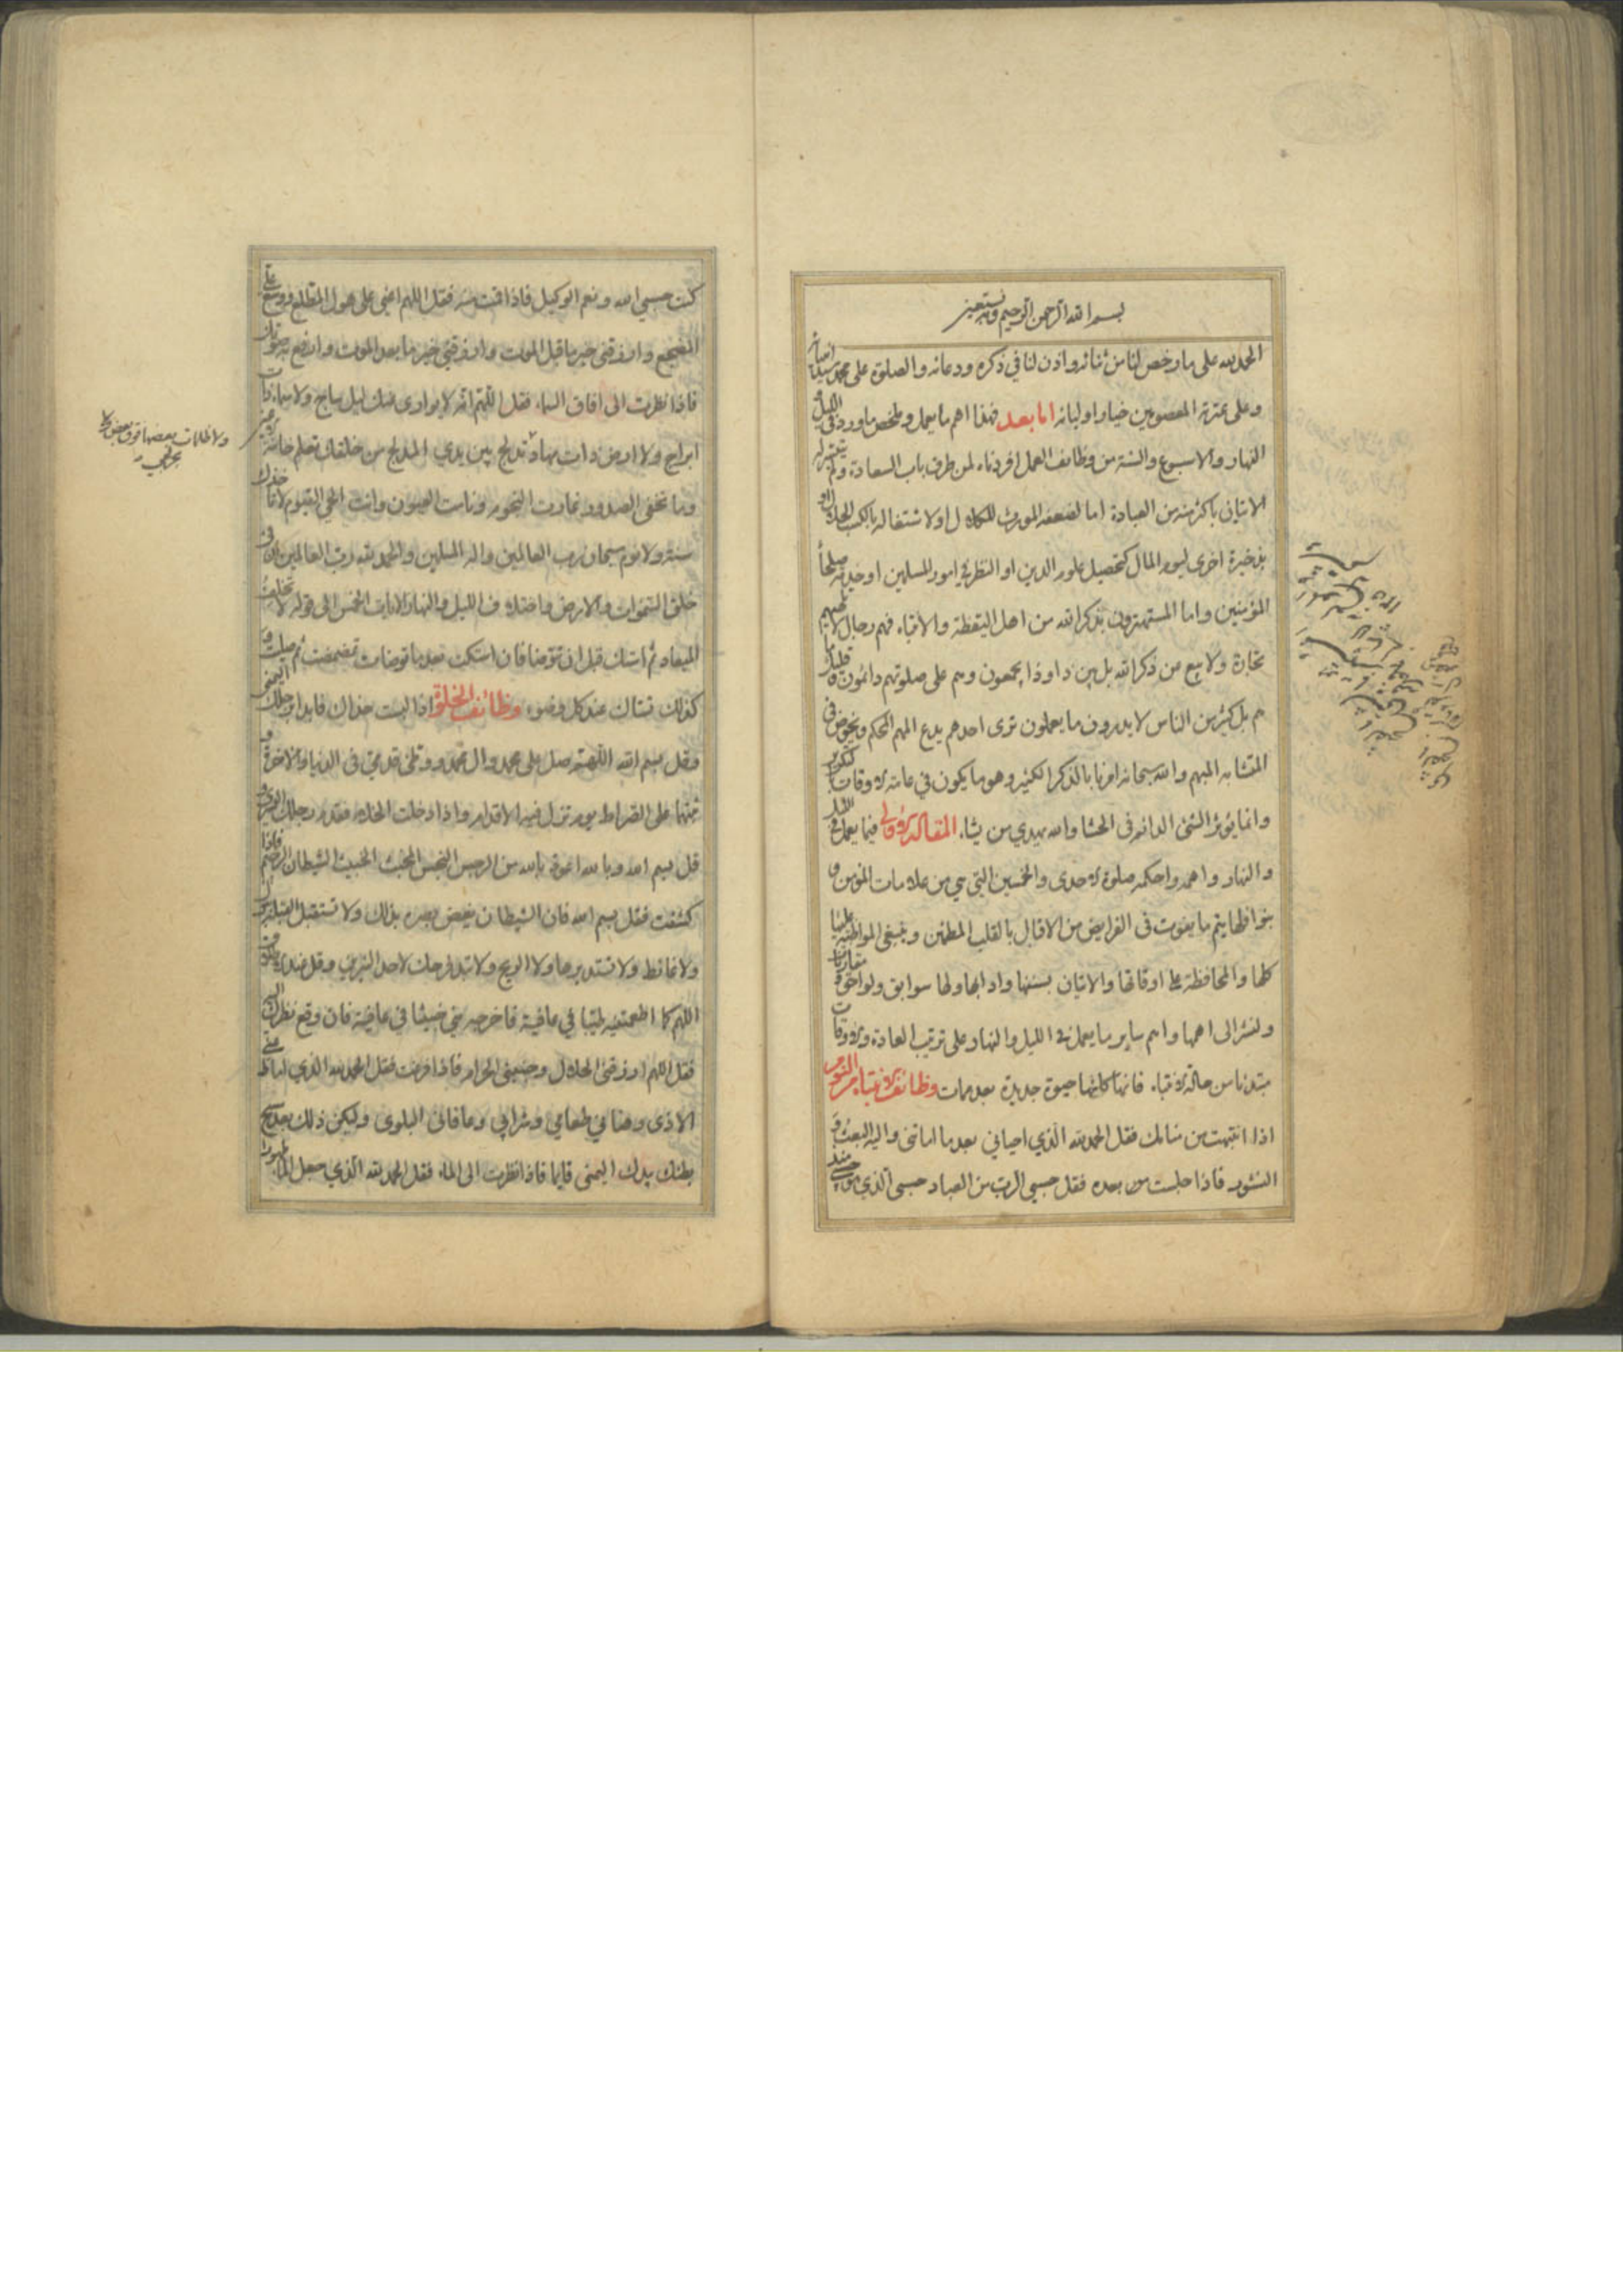 بسم الله الرحمن الرحيم وبه نستعين
الحمد لله على ما رخص لنا من ثنائه واذن لنا في ذكره ودعائه والصلوة على محمد سيد انبيائه
وعلى عترته المعصومين خيار اوليائه اما بعد فهذا اهم ما يعمل وملخص ما ورد في الليل و
النهار والاسبوع والسنة من وظائف العمل افردناه لمن طرق باب السعادة ولم يتيسر له
الاتيان باكثر منه من العبادة اما لضعفه المورث للكلال او لاشتغاله بالكسب الحلال او
بذخيرة اخرى ليوم المال كتحصيل علوم الدين او النظر في امور المسلمين او خدمة صلحاء
المؤمنين واما المستهترون بذكر الله من اهل اليقظة والانتباه فهم رجال لا تلهيهم
تجارة ولا بيع عن ذكر الله بل من ذا وذا يجمعون وهم على صلوتهم دائمون وقليل ما
هم بل كثير من الناس لا يدرون ما يعملون ترى احدهم يدع المهم المحكم ويخوض في
المتشابه المبهم والله سبحانه امرنا بالذكر الكثير وهو ما يكون في عامة الاوقات لتكرير
وانما يؤثر الشئ الدائم في الحشا والله يهدي من يشاء المقالة الاولى فيما يعمل في الليل
والنهار واهمه واحكمه صلوة الاحدى والخمسين التي هي من علامات المؤمن و
بنوافلها يتم ما يفوت في الفرايض من الاقبال بالقلب المطمئن وينبغي المواظبة عليها
كلها والمحافظة على اوقاتها والاتيان بسننها وادابها ولها سوابق ولواحق ومقارنات
ولنشر الى اهمها واهم ساير ما يعمل في الليل والنهار على ترتيب العادة والاوقات
مبتدئا من حالة الانتباه فانها كانها حيوة جديدة بعد ممات وظائف الانتباه من النوم
اذا انتبهت من منامك فقل الحمد لله الذي احياني بعد ما اماتني واليه البعث و
النشور فاذا جلست من بعده فقل حسبي الرب من العباد حسبي الذي هو حسبي منذ
كنت حسبي الله ونعم الوكيل فاذا قمت منه فقل اللهم اعني على هول المطلع ووسع علي
المضجع وارزقني خير ما قبل الموت وارزقني خير ما بعد الموت وارفع به صوتك
فاذا نظرت الى افاق السماء فقل اللهم انه لا يوارى منك ليل ساج ولا سماء ذات
ابراج ولا ارض ذات مهاد تدلج بين يدي المدلج من خلقك تعلم خائنة الاعين
ولا ظلمات بعضها فوق بعض ولا بحر لجي
وما تخفى الصدور غارت النجوم ونامت العيون وانت الحي القيوم لا تاخذك
سنة ولا نوم سبحان رب العالمين واله المسلمين والحمد لله رب العالمين ان في
خلق السموات والارض واختلاف الليل والنهار الايات الخمس الى قوله لا تخلف
الميعاد ثم استك قبل ان توضا فان استكت بعد ما توضات تمضمضت ثم صليت و
كذلك تستاك عند كل وضوء وظائف الخلوة اذا لبست حذاك فابدا برجلك اليمنى
وقل بسم الله اللهم صل على محمد وال محمد ووطئ قدمي في الدنيا والاخرة و
ثبتها على الصراط يوم تزل فيه الاقدام واذا دخلت الخلاء فقدم رجلك اليسرى و
قل بسم الله وبالله اعوذ بالله من الرجس النجس المخبث الخبيث الشيطان الرجيم فاذا
كشفت فقل بسم الله فان الشيطان يغض بصره بذلك ولا تستقبل القبلة ببول
ولا غائط ولا تستدبرها ولا الريح ولا تبد فرجك لاحد النيرين وقل عند
اللهم كما اطعمتنيه طيبا في عافية فاخرجه مني خبيثا في عافية فان وقع نظرك اليه
فقل اللهم ارزقني الحلال وجنبني الحرام فاذا فرغت فقل الحمد لله الذي اماط عني
الاذى وهنأني طعامي وشرابي وعافاني البلوى وليكن ذلك بعد مسح
بطنك بيدك اليمنى قايما فاذا نظرت الى الماء فقل الحمد لله الذي جعل الماء طهورا